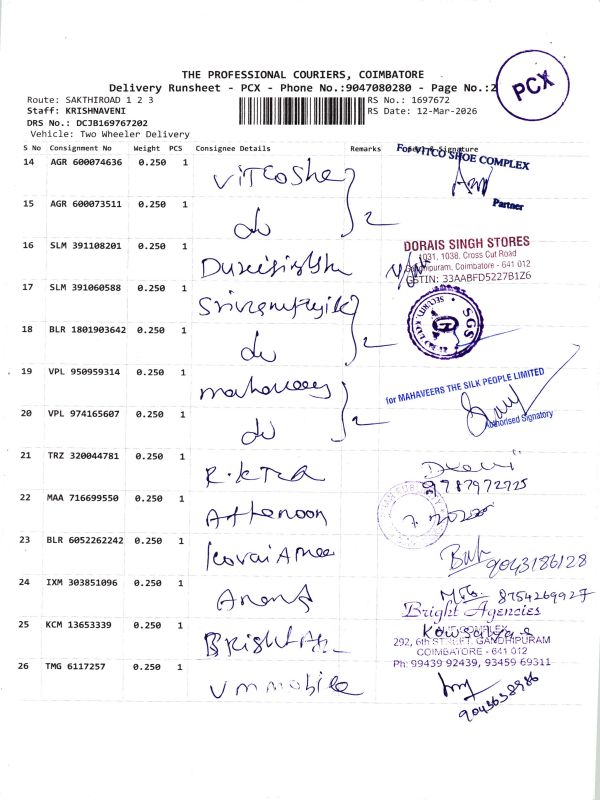 THE PROFESSIONAL COURIERS, COIMBATORE
Delivery Runsheet - PCX - Phone No.:9047080280 - Page No.:2
PCX
Route: SAKTHIROAD 1 2 3
RS No.: 1697672
Staff: KRISHNAVENI
RS Date: 12-Mar-2026
DRS No.: DCJB169767202
Vehicle: Two Wheeler Delivery
S No Consignment No Weight PCS Consignee Details Remarks Signature
14 AGR 600074636 0.250 1 VITCO Shoe
For VITCO SHOE COMPLEX
Partner
15 AGR 600073511 0.250 1 do 2
16 SLM 391108201 0.250 1
DORAIS SINGH STORES
1031, 1038, Cross Cut Road
Gandhipuram, Coimbatore - 641 012
GSTIN: 33AABFD5227B1Z6
17 SLM 391060588 0.250 1
SGS
18 BLR 1801903642 0.250 1 do 2
19 VPL 950959314 0.250 1 mahaveers
for MAHAVEERS THE SILK PEOPLE LIMITED
Authorised Signatory
20 VPL 974165607 0.250 1 do 2
21 TRZ 320044781 0.250 1
9787972725
22 MAA 716699550 0.250 1 Afternoon
23 BLR 6052262242 0.250 1 Kovai
9043186128
24 IXM 303851096 0.250 1 Anand
8754269927
Bright Agencies
25 KCM 13653339 0.250 1 Bright
Kowsalya.s
292, 6th STREET, GANDHIPURAM
COIMBATORE - 641 012
Ph: 99439 92439, 93459 69311
26 TMG 6117257 0.250 1 Vm mobile
9043638986